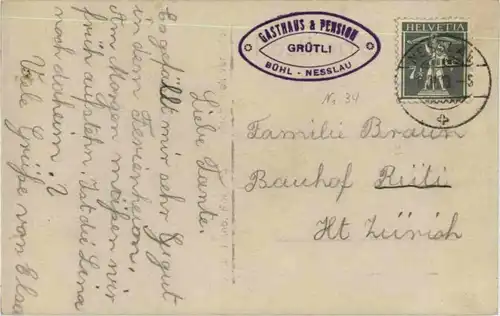 Liebe Tante.
Es gefällt mir sehr gut
in dem Ferienheim.
Am Morgen müßen wir
früh aufstehn. Ist die Lina
noch daheim?
Viele Grüße von Elsa
GASTHAUS & PENSION
GRÜTLI
BÜHL - NESSLAU
HELVETIA
7½
Nr. 34
Familie Braun
Bauhof Rüti
Kt Zürich